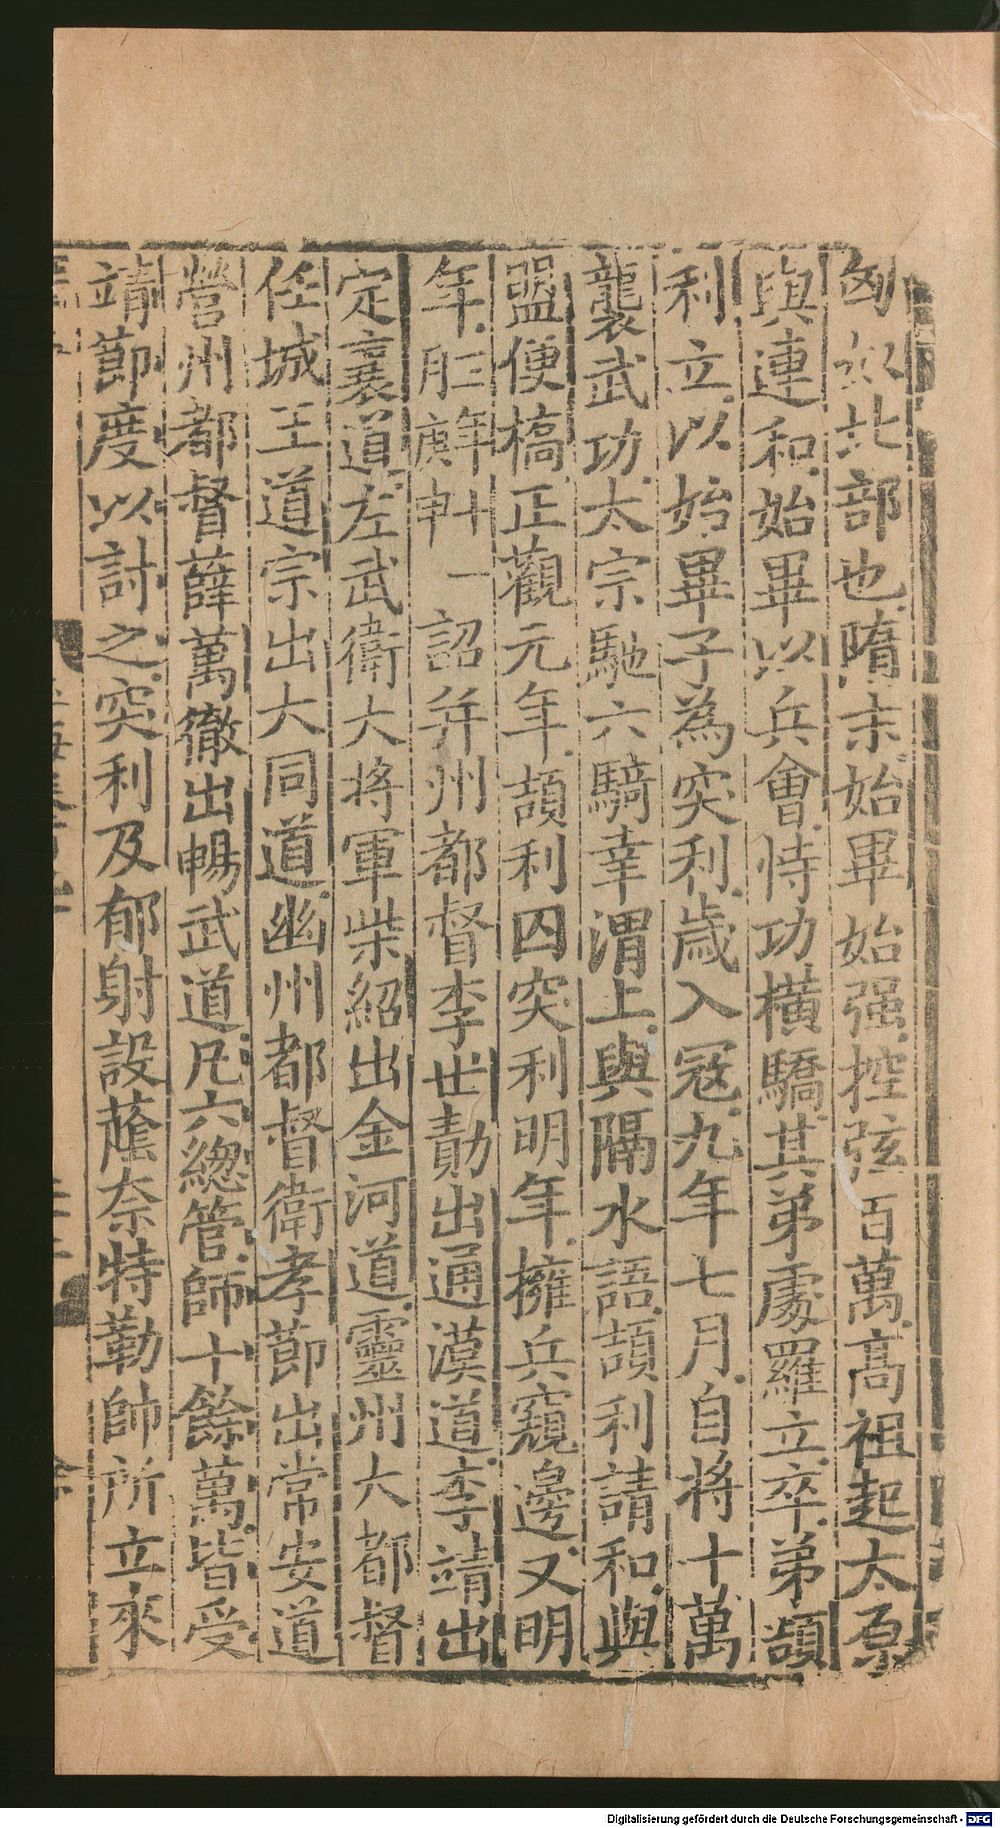 匈奴北部也隋末始畢始强控弦百萬髙祖起太原
與連和始畢以兵會恃功橫驕其弟處羅立卒弟頡
利立以始畢子為突利歲入冦九年七月自将十萬
襲武功太宗馳六騎幸渭上與隔水語頡利請和與
盟便橋正觀元年頡利囚突利明年擁兵窺邊又明
年 詔并州都督李世勣出通漠道李靖出
定襄道左武衛大将軍柴紹出金河道靈州大都督
任城王道宗出大同道幽州都督衛孝節出常安道
營州都督薛萬徹出暢武道凡六緫管師十餘萬皆受
靖節度以討之突利及郁射設䕃奈特勒帥所立來
Digitalisierung gefördert durch die Deutsche Forschungsgemeinschaft - DFG